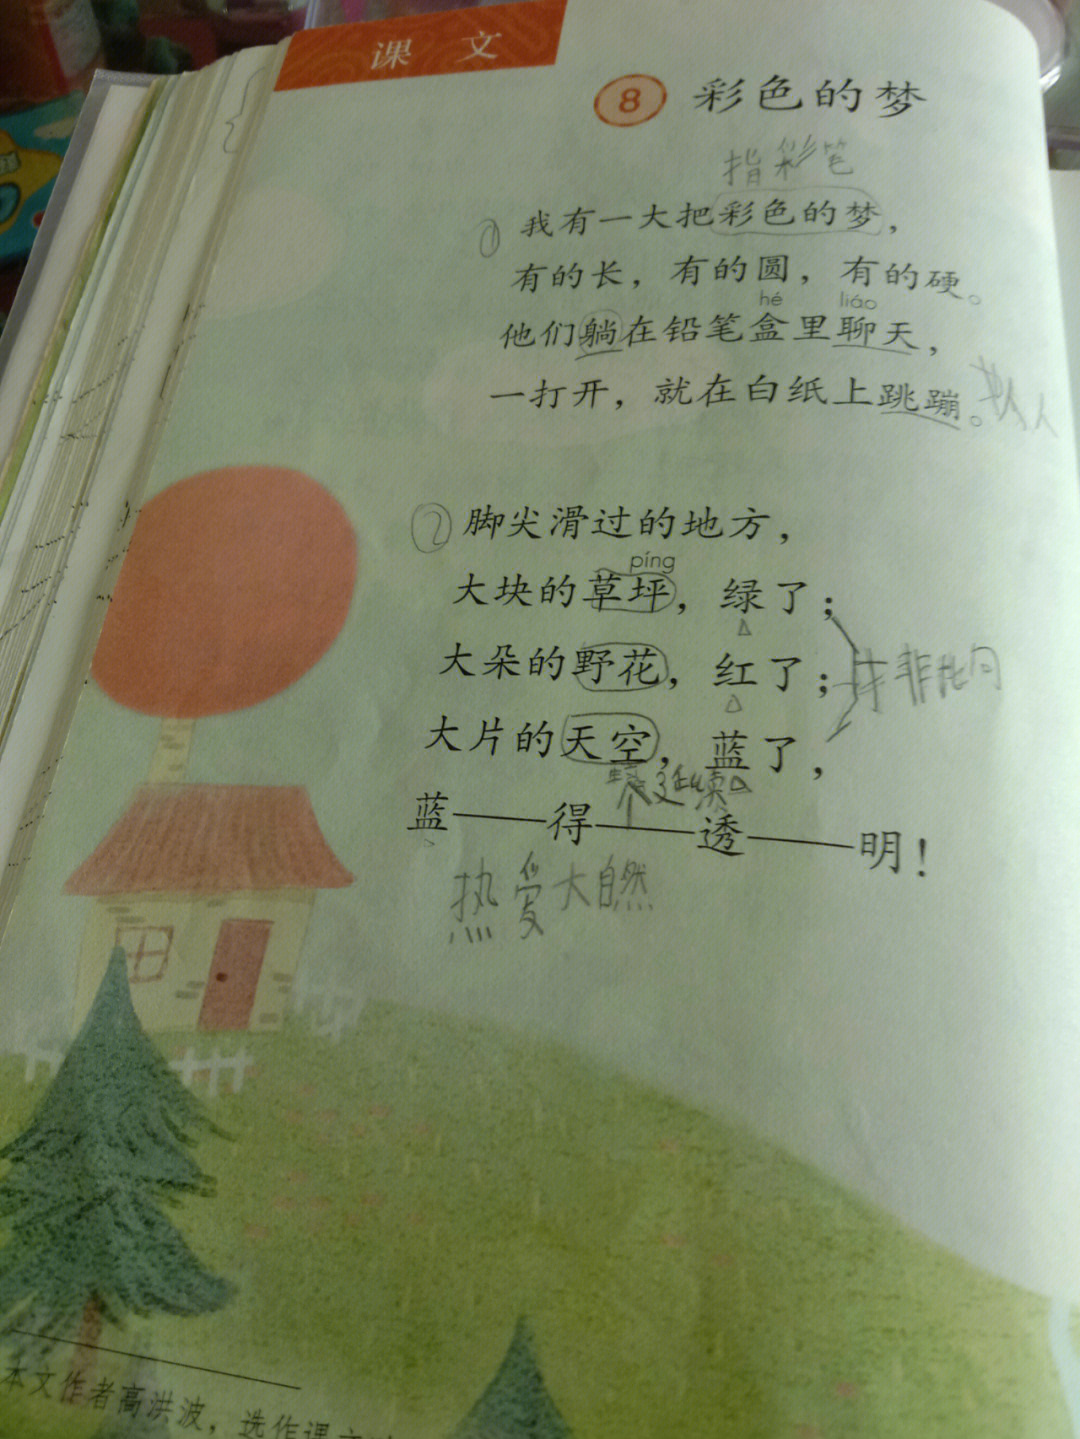 课 文
8 彩色的梦
指彩笔
① 我有一大把彩色的梦，
有的长，有的圆，有的硬。
hé liáo
他们躺在铅笔盒里聊天，
一打开，就在白纸上跳蹦。
② 脚尖滑过的地方，
píng
大块的草坪，绿了；
大朵的野花，红了；
大片的天空，蓝了，
延续
蓝——得——透——明！
热爱大自然
本文作者高洪波，选作课文